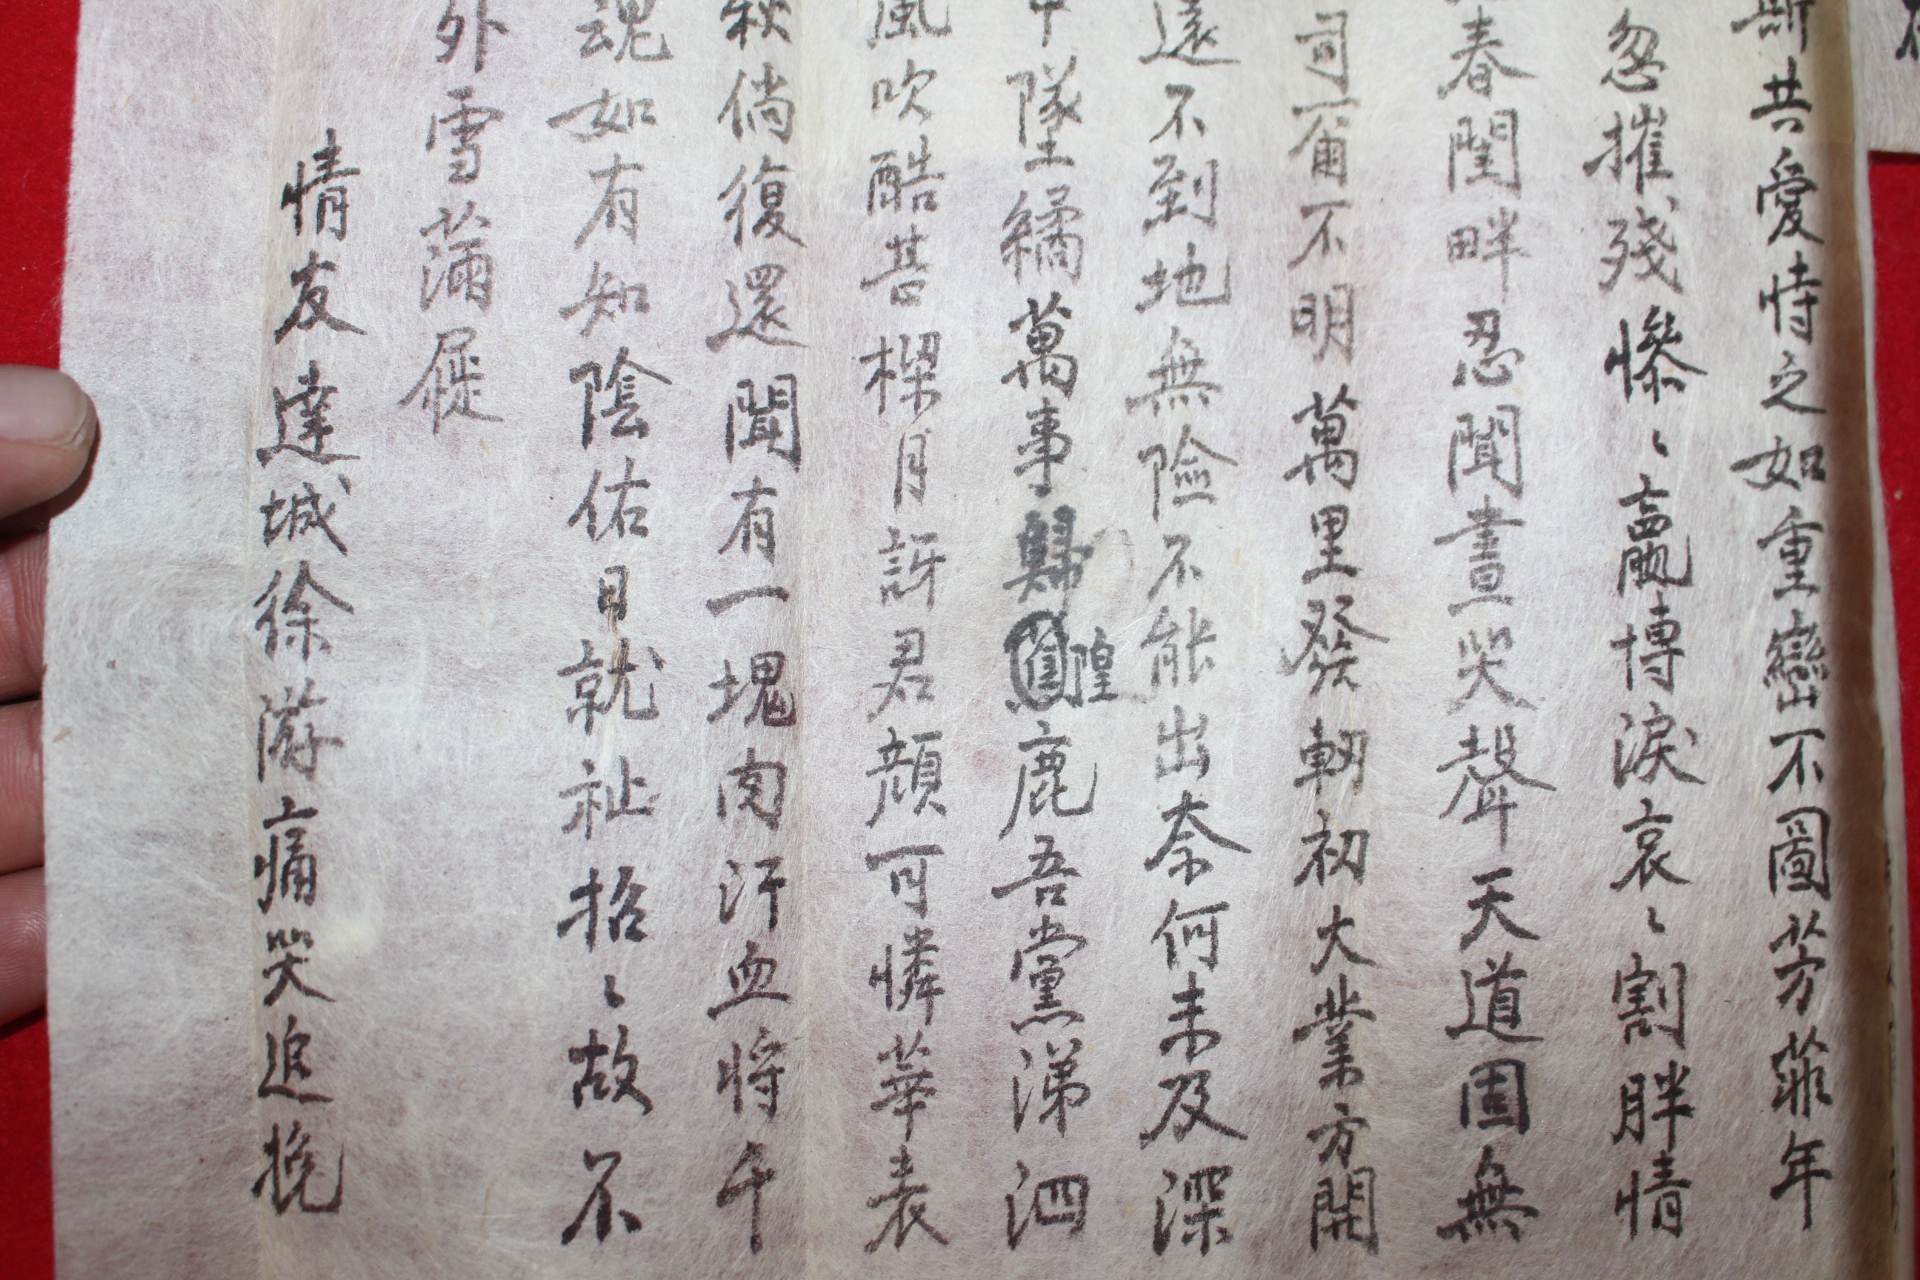 斯共愛恃之如重巒不圖芳菲年
忽摧殘慘〻嬴博淚哀〻割胖情
春閨畔忍聞晝哭聲天道固無
司甯不明萬里發軔初大業方開
遠不到地無險不能出奈何未及深
中墜繘萬事歸隍鹿吾黨涕泗
風吹酷苦樑月訝君顔可憐華表
秋倘復還聞有一塊肉汗血將千
魂如有知陰佑日就祉招〻故不
外雪滿屣
情友達城徐游痛哭追挽